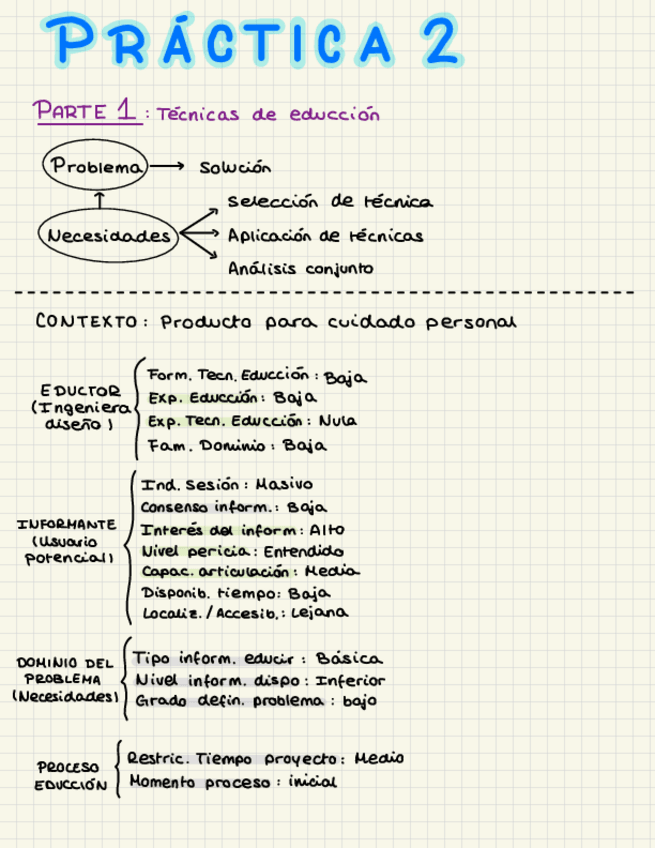 PRÁCTICA 2
PARTE 1: Técnicas de educción
Problema → Solución
Necesidades
Selección de técnica
Aplicación de técnicas
Análisis conjunto
CONTEXTO: Producto para cuidado personal
EDUCTOR
(Ingeniera
diseño)
Form. Tecn. Educción: Baja
Exp. Educción: Baja
Exp. Tecn. Educción: Nula
Fam. Dominio: Baja
INFORMANTE
(Usuario
potencial)
Ind. Sesión: Masivo
Consenso inform.: Baja
Interés del inform: Alto
Nivel pericia: Entendido
Capac. articulación: Media
Disponib. tiempo: Baja
Localiz./Accesib.: Lejana
DOMINIO DEL
PROBLEMA
(Necesidades)
Tipo inform. educir: Básica
Nivel inform. dispo: Inferior
Grado defin. problema: bajo
PROCESO
EDUCCIÓN
Restric. Tiempo proyecto: Medio
Momento proceso: inicial